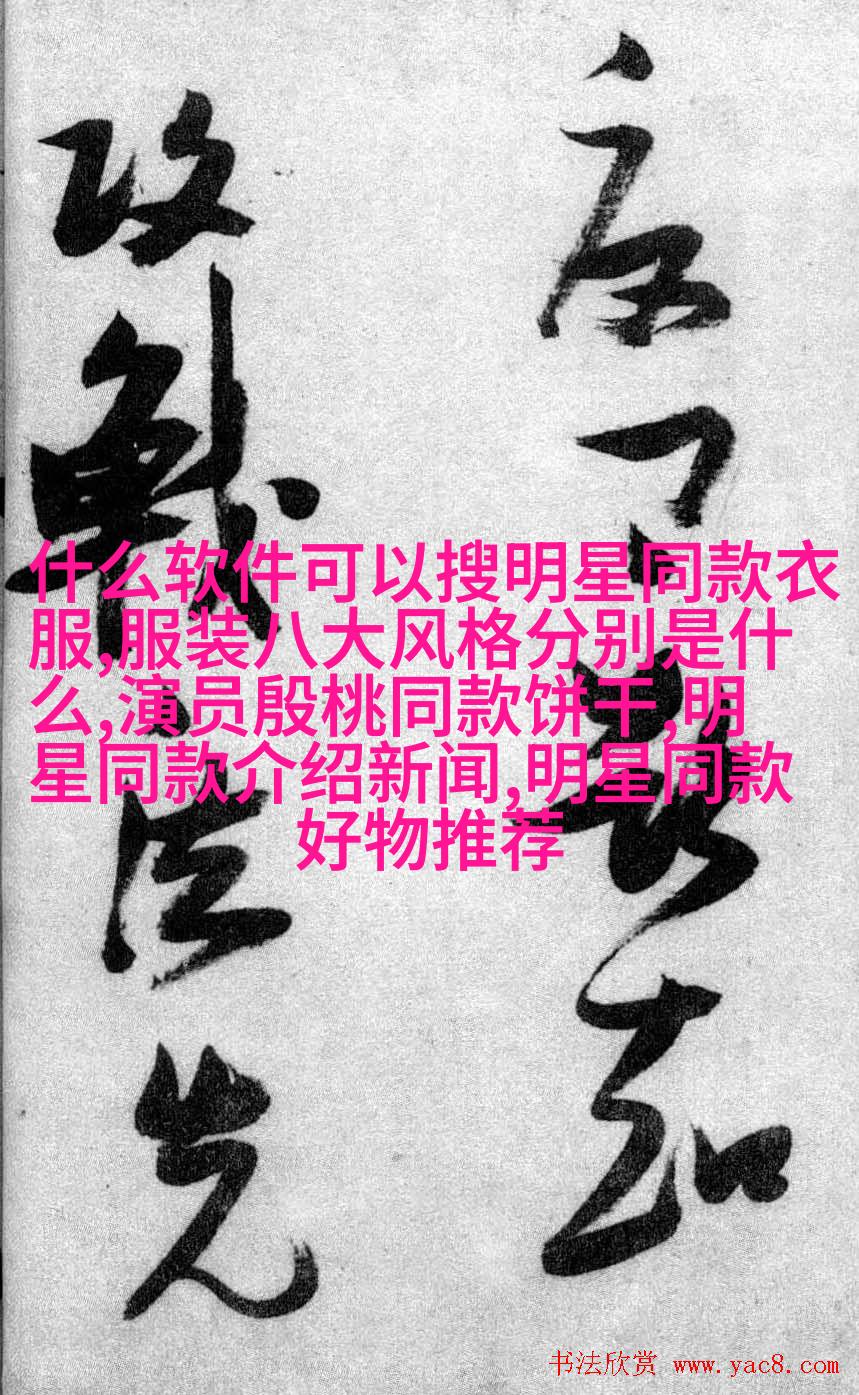 什么软件可以搜明星同款衣
服,服装八大风格分别是什
么,演员殷桃同款饼干,明
星同款介绍新闻,明星同款
好物推荐
攻戰法先
书法欣赏 www.yac8.com